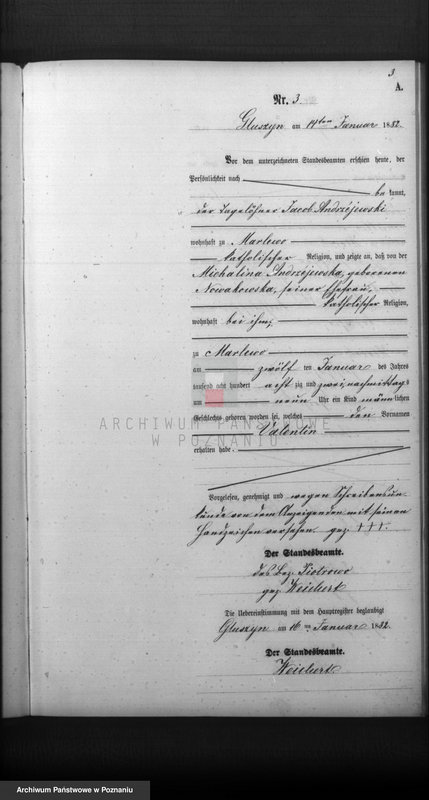 3
A.
Nr. 3
Gluszyn am 14ten Januar 1882.
Vor dem unterzeichneten Standesbeamten erschien heute, der
Persönlichkeit nach
be kannt,
der Tagelöhner Jacob Andrzejewski
wohnhaft zu Marlewo
katholischer Religion, und zeigte an, daß von der
Michalina Andrzejewska, geborenen
Nowakowska, seiner Ehefrau,
katholischer Religion,
wohnhaft bei ihm,
zu Marlewo
am zwölf ten Januar des Jahres
tausend acht hundert acht zig und zwei nachmittags
um neun Uhr ein Kind männ lichen
Geschlechts geboren worden sei, welches den Vornamen
Valentin
erhalten habe.
Vorgelesen, genehmigt und wegen Schreibensun-
kunde von dem Anzeigenden mit seinem
Handzeichen versehen. gez. +++.
Der Standesbeamte.
des Bez. Piotrowo
gez. Weichert
Die Uebereinstimmung mit dem Hauptregister beglaubigt
Gluszyn am 16ten Januar 1882.
Der Standesbeamte.
Weichert
ARCHIWUM PAŃSTWOWE
W POZNANIU
Archiwum Państwowe w Poznaniu